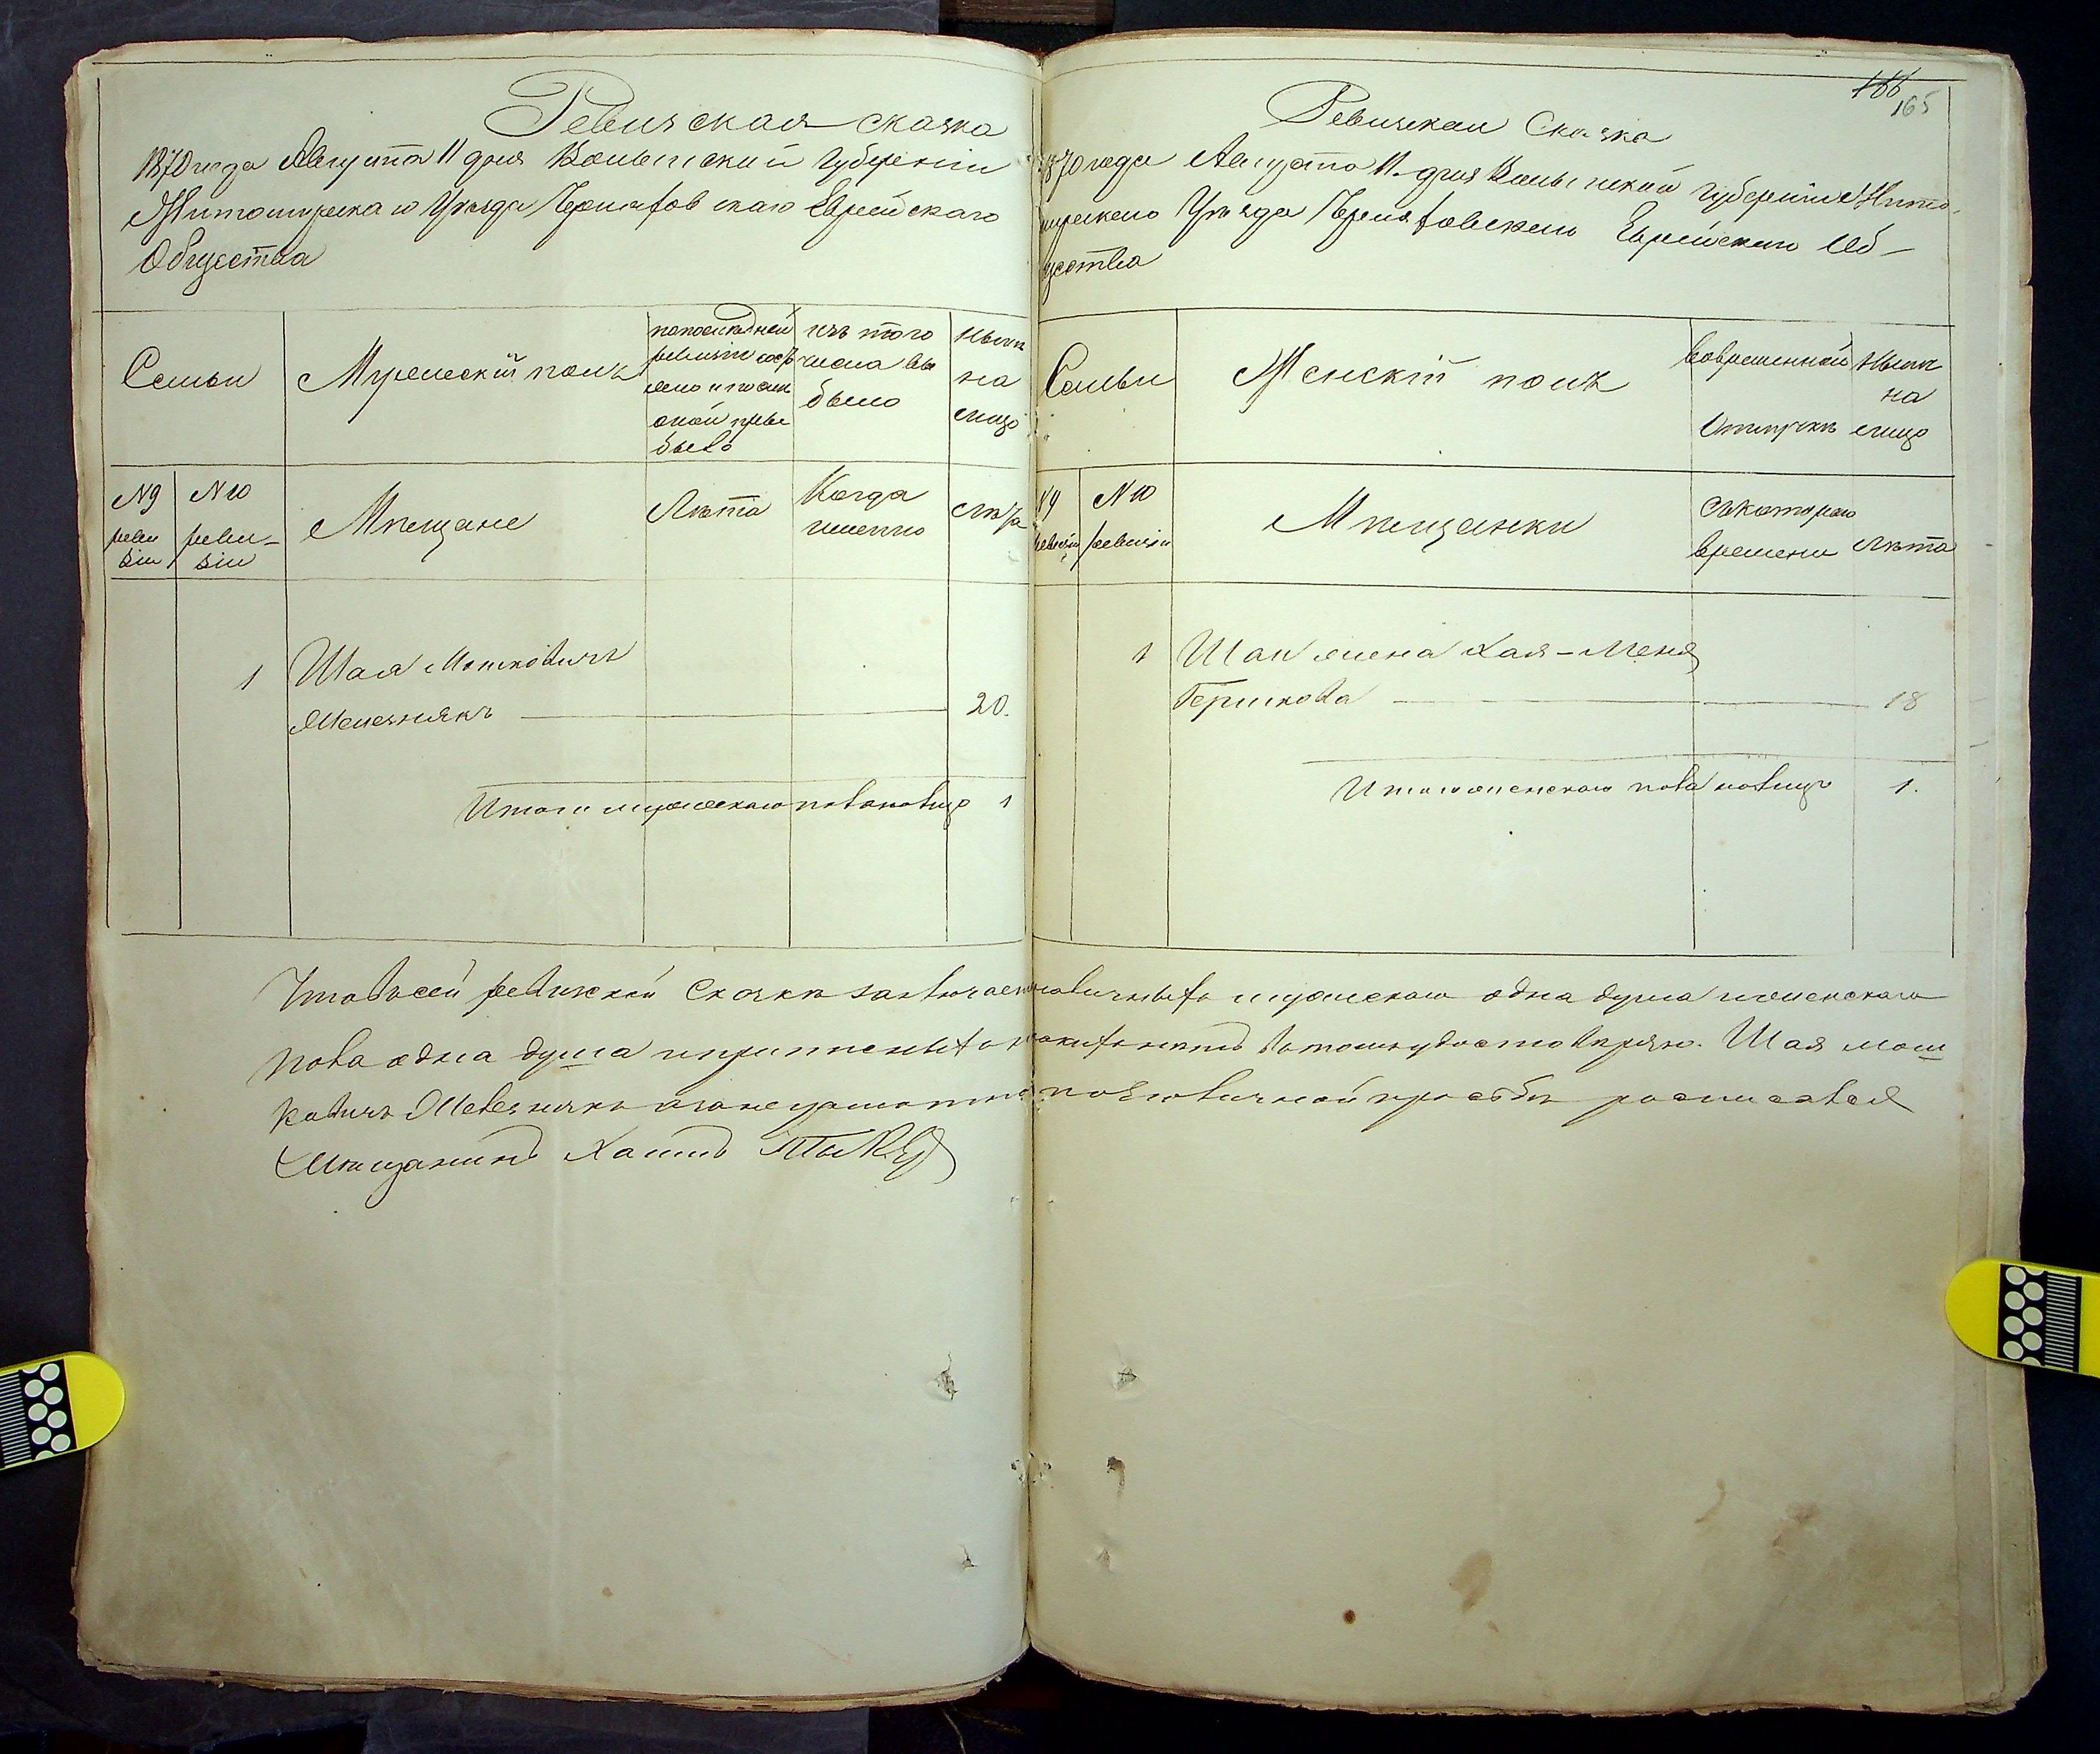 Ревизская сказка
1870 года Августа 11 дня Волынской Губерніи
Житомирскаго Уѣзда Черняховскаго Еврейскаго
Общества
Семьи
Мужескій полъ
по последней
ревизіи сос
было
изъ того
числа вы
было
Нынѣ
на
лицо
№ 9
реви
зіи
№ 10
реви-
зіи
Мѣщане
Лѣта
Когда
именно
Лѣта
1
Шая Мошковичъ
20.
Итого мужескаго пола налицо 1
166
165
Ревизская Сказка
1870 года Августа 11 дня Волынской Губерніи Жито-
мирскаго Уѣзда Черняховскаго Еврейскаго Об-
щества
Семьи
Женскій полъ
Вовременной
Отлучкѣ
Нынѣ
на
лицо
№ 9
ревизіи
№ 10
ревизіи
Мѣщанки
Съкотораго
времени
Лѣта
1
Шаи жена Хая-
Гершкова 18
Итого женскаго пола налицо 1.
Что въ сей ревизской Сказкѣ заключается наличныхъ мужескаго одна душа женскаго
пола одна душа и прописныхъ никакихъ нетъ въ томъ удостовѣряю. Шая Мош
ковичъ а за неграмотнаго по его личной просьбѣ росписался
Мѣщанинъ Хаимъ